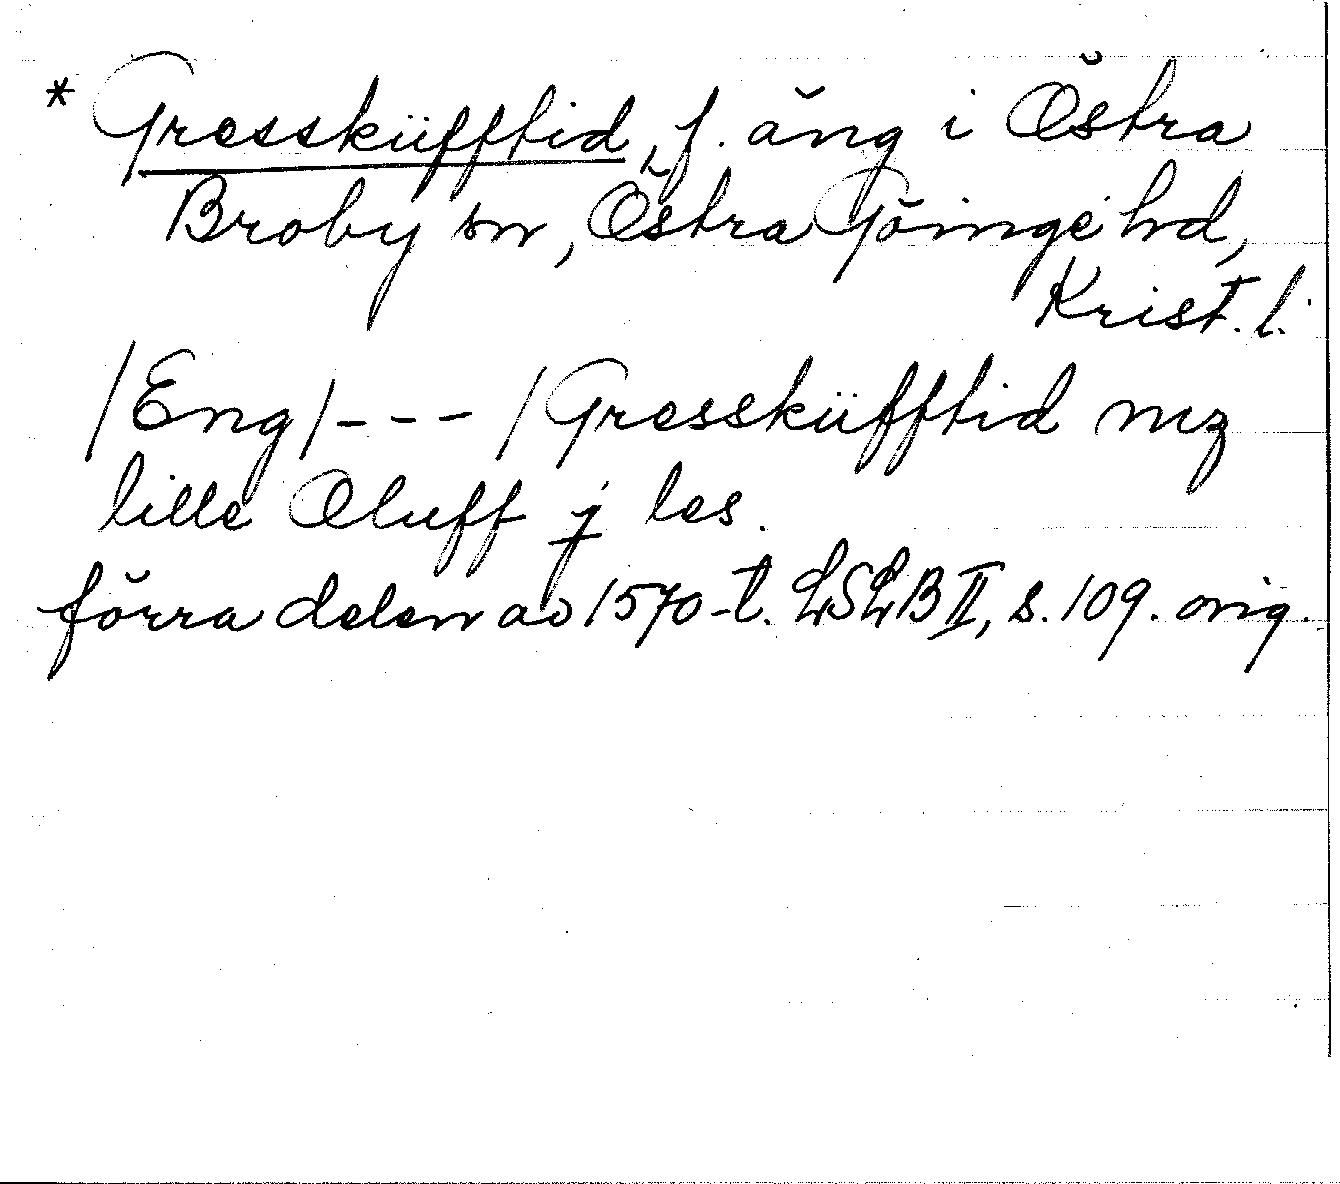 * Gresskùfftid, f. äng i Östra
Broby sn, Östra Göinge hd,
Krist. l.
/Eng/--- /Gresskùfftid mz
lille Oluff j les.
förra delen av 1570-t. LSLB II, s. 109. orig.